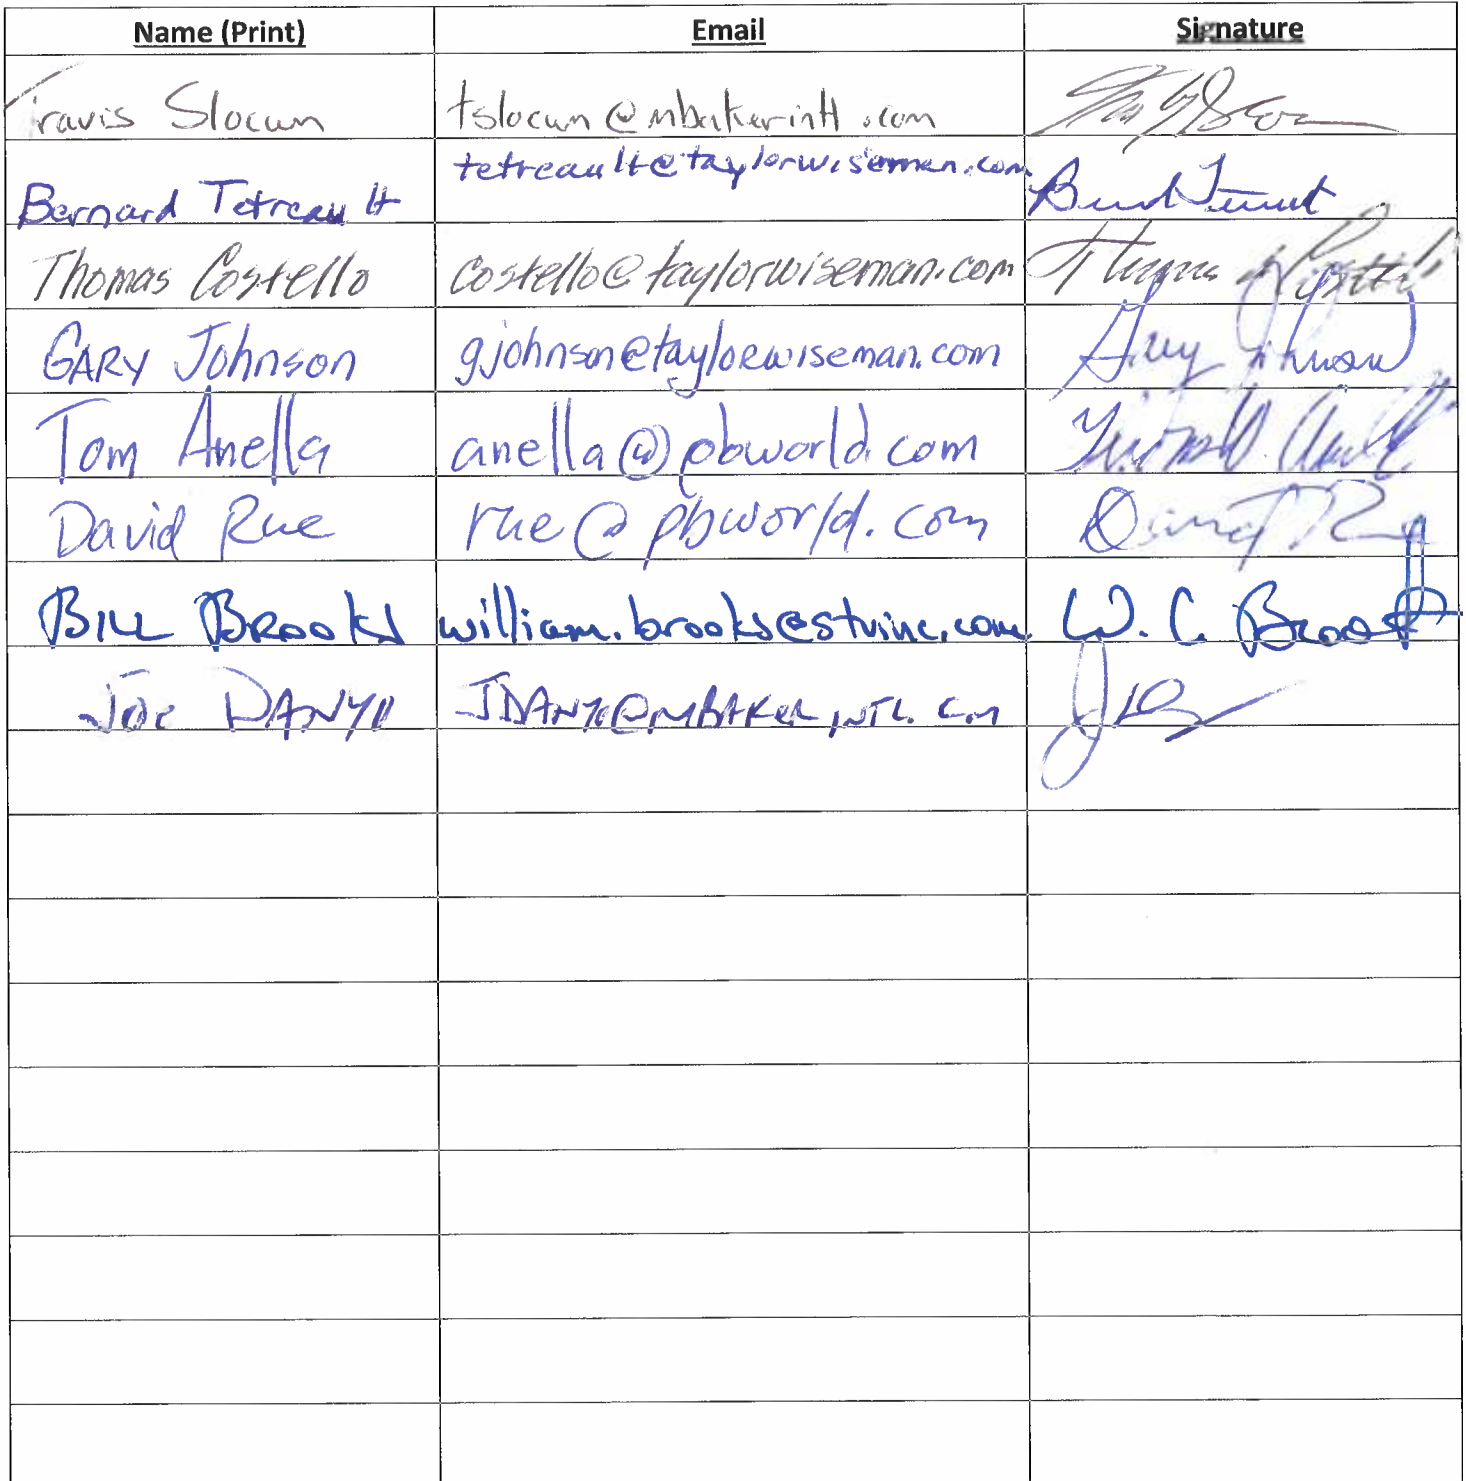 Name (Print) Email Signature
Travis Slocum tslocum@mbakerintl.com
Bernard Tetreault tetreault@taylorwiseman.com
Thomas Costello costello@taylorwiseman.com Thomas Costello
GARY Johnson gjohnson@taylorwiseman.com Gary Johnson
Tom Anella anella@pbworld.com
David Rue rue@pbworld.com
BILL BROOKS william.brooks@stvinc.com W. C. Brooks
Joe DANYO JDANYO@MBAKERINTL.COM